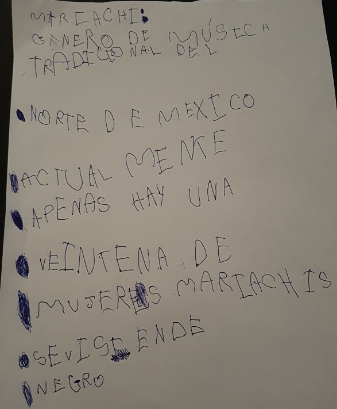 MARIACHI:
GÉNERO DE MÚSICA
TRADICIONAL DEL
• NORTE DE MEXICO
• ACTUAL MENKE
• APENAS HAY UNA
• VEINTENA DE
• MUJERES MARIACHIS
• SEVISE ENDE
• NEGRO